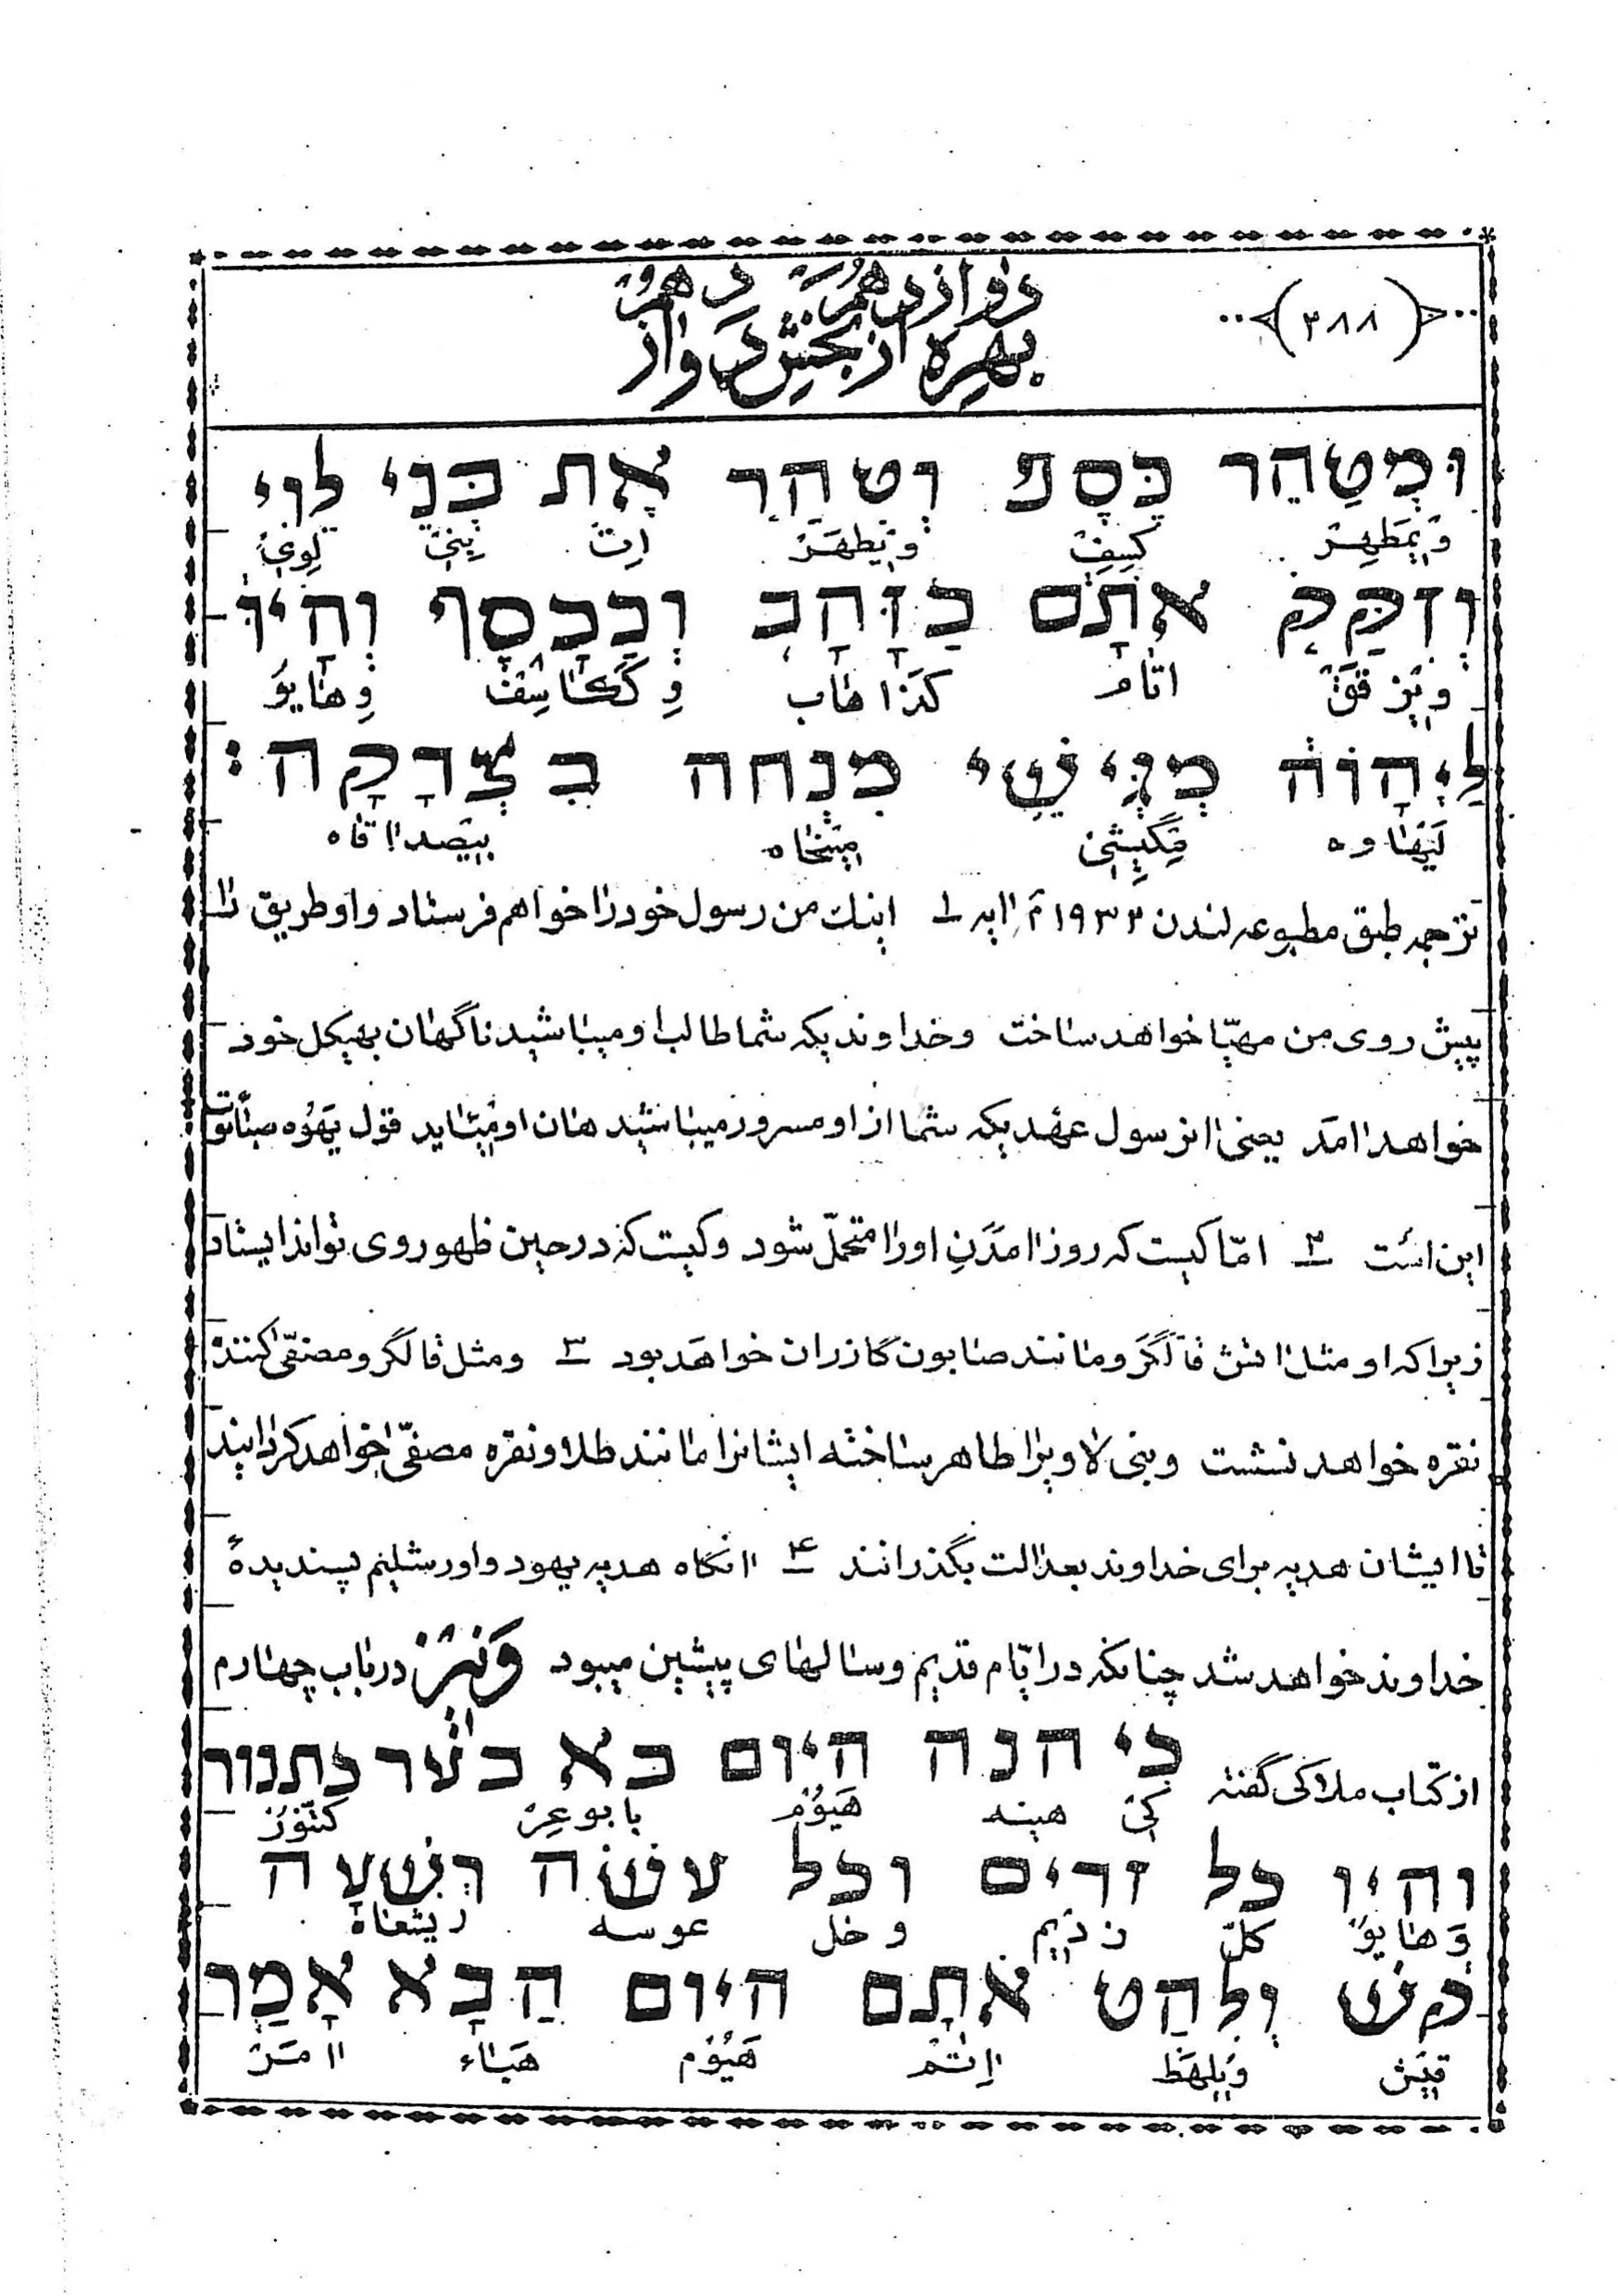 ﴿۳۸۸﴾
دوازدهم دهم
بهره از بخش دواز
וּמְטַהֵר כֶּסֶפ וְטִהַר אֶת בְּנֵי לֵוִי
وִمِطَهِر کِسِف وِیطهَر اِت بِنِی لِوِی
וְזִקַּק אֹתָם כַּזָּהָב וְכַכָּסֶף וְהָיוּ
وِیزقَق اتام کَزاهاب وِ کَکاسِف وِهایو
לַיְהוֹה מַגִּישֵׁי מִנְחה בִּצְדָקָה׃
لَیهاوه مَگیشِی مینخاه بیصداقاه
ترجمه طبق مطبوعه لندن ۱۹۳۳ م آیه ۱ اینك من رسول خود را خواهم فرستاد و او طریق را
پیش روی من مهیّا خواهد ساخت و خداوندیکه شما طالب او میباشید ناگهان بهیکل خود
خواهد آمد یعنی آنرسول عهدیکه شما از او مسرور میباشید هان او میآید قول یَهُوَه صبأوت
این است ۲ امّا کیست که روز آمدن او را متحمّل شود و کیست که در حین ظهور وی تواند ایستاد
زیرا که او مثل آتش قالگر و مانند صابون گازران خواهد بود ۳ و مثل قالگر و مصفّی کننده
نقره خواهد نشست و بنی لاویرا طاهر ساخته ایشانرا مانند طلا و نقره مصفّی خواهد گردانید
تا ایشان هدیه برای خداوند بعدالت بگذرانند ۴ آنگاه هدیه یهود و اورشلیم پسندیدهٔ
خداوند خواهد شد چنانکه در ایّام قدیم و سالهای پیشین میبود وَنیز در باب چهارم
از کتاب ملاکی گفته כִּי הנה היום בא בֹּעֵר כתנור
کی هینه هَیوُم با بوعِر کَتَنّور
והיו כל זדים וכל עשׂה רִשְׁעָה
وَهایو کلّ زدیم و خل عوسه ریشعاه
קַשׁ וְלִהַט אֹתָם היום הַבָּא אָמַר
قَش وِیلهَط اُاِتام هَیوُم هَباء اامَر